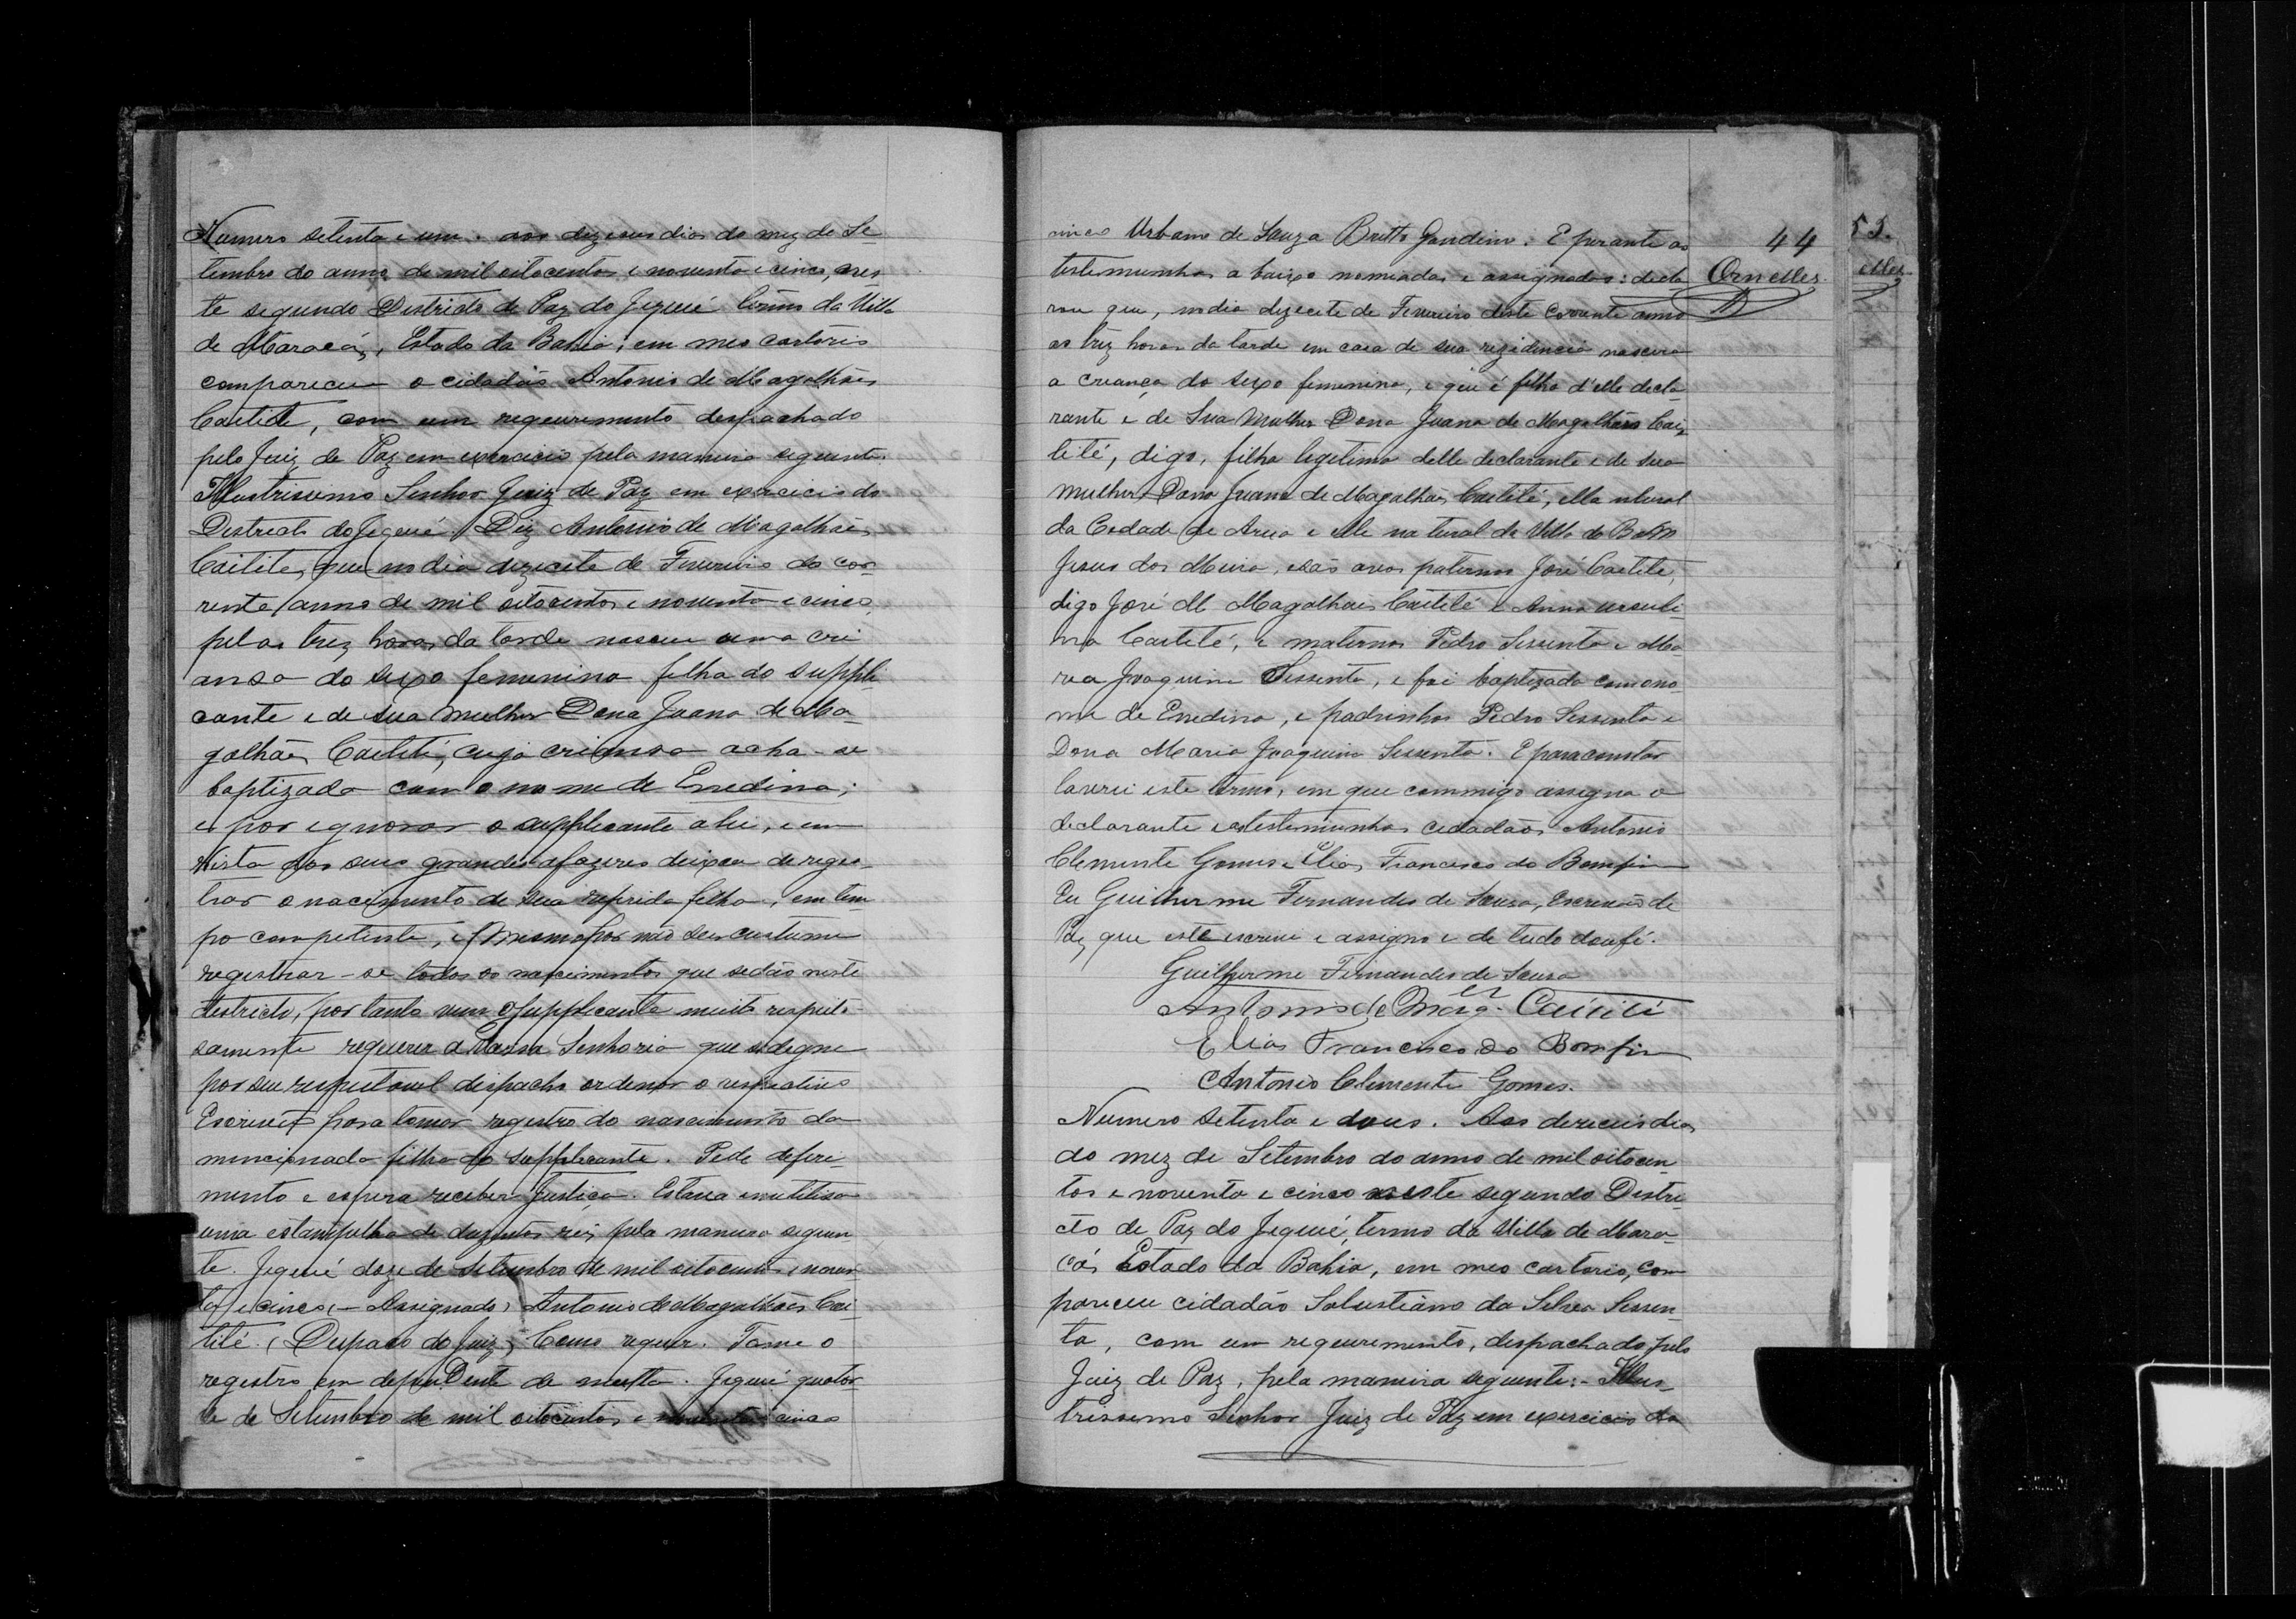 Numero setenta e um. aos dezeseis dias do mez de Se-
tembro do anno de mil oitocentos e noventa e cinco, nes-
te segundo Districto de Paz do Jequié termo da Villa
de Maracás, Estado da Bahia; em meo cartorio
compareceu o cidadão Antonio de Magalhães
Caetité, com um requerimento despachado
pelo Juiz de Paz em exercicio pela maneira seguinte.
Illustrissimo Senhor Juiz de Paz em exercicio do
Districto do Jequié. Diz Antonio de Magalhães
Caitité, que no dia dezecete de Fevereiro do cor-
rente anno de mil oitocentos e noventa e cinco,
pelas trez horas da tarde nasceu uma cri
ansa do sexo femenino filha do suppli-
cante e de sua mulher Dona Juana de Ma-
galhães Caetité, cuja criansa acha-se
baptizada com o nome de Enedina;
e por ignorar o supplicante a lei, e em
vista dos seus grandes afazeres deixou de regis-
trar o nacimento de sua referida filha, em tem-
po competente, e mesmo por não ser custume
registrar-se todos os nascimentos que se dão neste
destricto, por tanto vem o supplicante muito respeito-
samente requerer a Vossa Senhoria que se digne
por seu respeitavel dispacho ordenar o respectivo
Escrivão para tomar registro do nascimento da
mencionada filha do supplicante. Pede deferi-
mento e espera receber Justiça. Estava inutilisa
uma estampilha de duzentos reis pela maneira seguin-
te. Jequié doze de Setembro de mil oitocentos e noven
ta e cinco, - Assignado, Antonio de Magalhães Cai-
tité. (Despaxo do Juiz) Como requer. Tome o
registro em dependente de multa. Jequié quator
ze de Setembro de mil oitocentos e noventa e cinco
cinco Urbano de Souza Britto Gondim. E perante as
testemunhas a baixo nomeadas e assignadas: decla
rou que, no dia dezecete de Fevereiro deste corrente anno
as trez horas da tarde em casa de sua rezidencia nascera
a criança do sexo femenino, e que é filha d'elle decla-
rante e de sua mulher Dona Juana de Magalhães Cai-
tité, digo, filha legitima delle declarante e de sua
mulher Dona Juana de Magalhães Caetité, ella natural
da Cidade de Areia e elle natural da Villa do Bom
Jesus dos Meira, são avos paternos José Caetité,
digo José M Magalhães Caetité e Anna ursuli-
na Caetité, e maternos Pedro Sessenta e Ma-
ria Joaquina Sessenta, e foi baptizada com o no-
me de Enedina, e padrinhos Pedro Sessenta e
Dona Maria Joaquina Sessenta. E para constar
lavrei este termo, em que commigo assigna o
declarante e as testemunhas cidadãos Antonio
Clemente Gomes e Elias Francisco do Bomfim
Eu Guilherme Fernandes de Souza, Escrivão de
Paz que este escrevi e assigno e de tudo dou fé.
Guilherme Fernandes de Souza
Antonio de Mag.es Caitité
Elias Francisco do Bomfim
Antonio Clemente Gomes.
Numero setenta e dous. Aos deseceis dias
do mez de Setembro do anno de mil oitocen-
tos e noventa e cinco neste segundo Distri-
cto de Paz do Jequié, termo da Villa de Mara-
cás Estado da Bahia, em meo cartorio, com
pareceu cidadão Salustiano da Silva Sessen-
ta, com um requerimento, despachado pelo
Juiz de Paz, pela maneira seguinte:- Illus-
trissimo Senhor Juiz de Paz em exercicio do
44
Ornelles
53.
elles